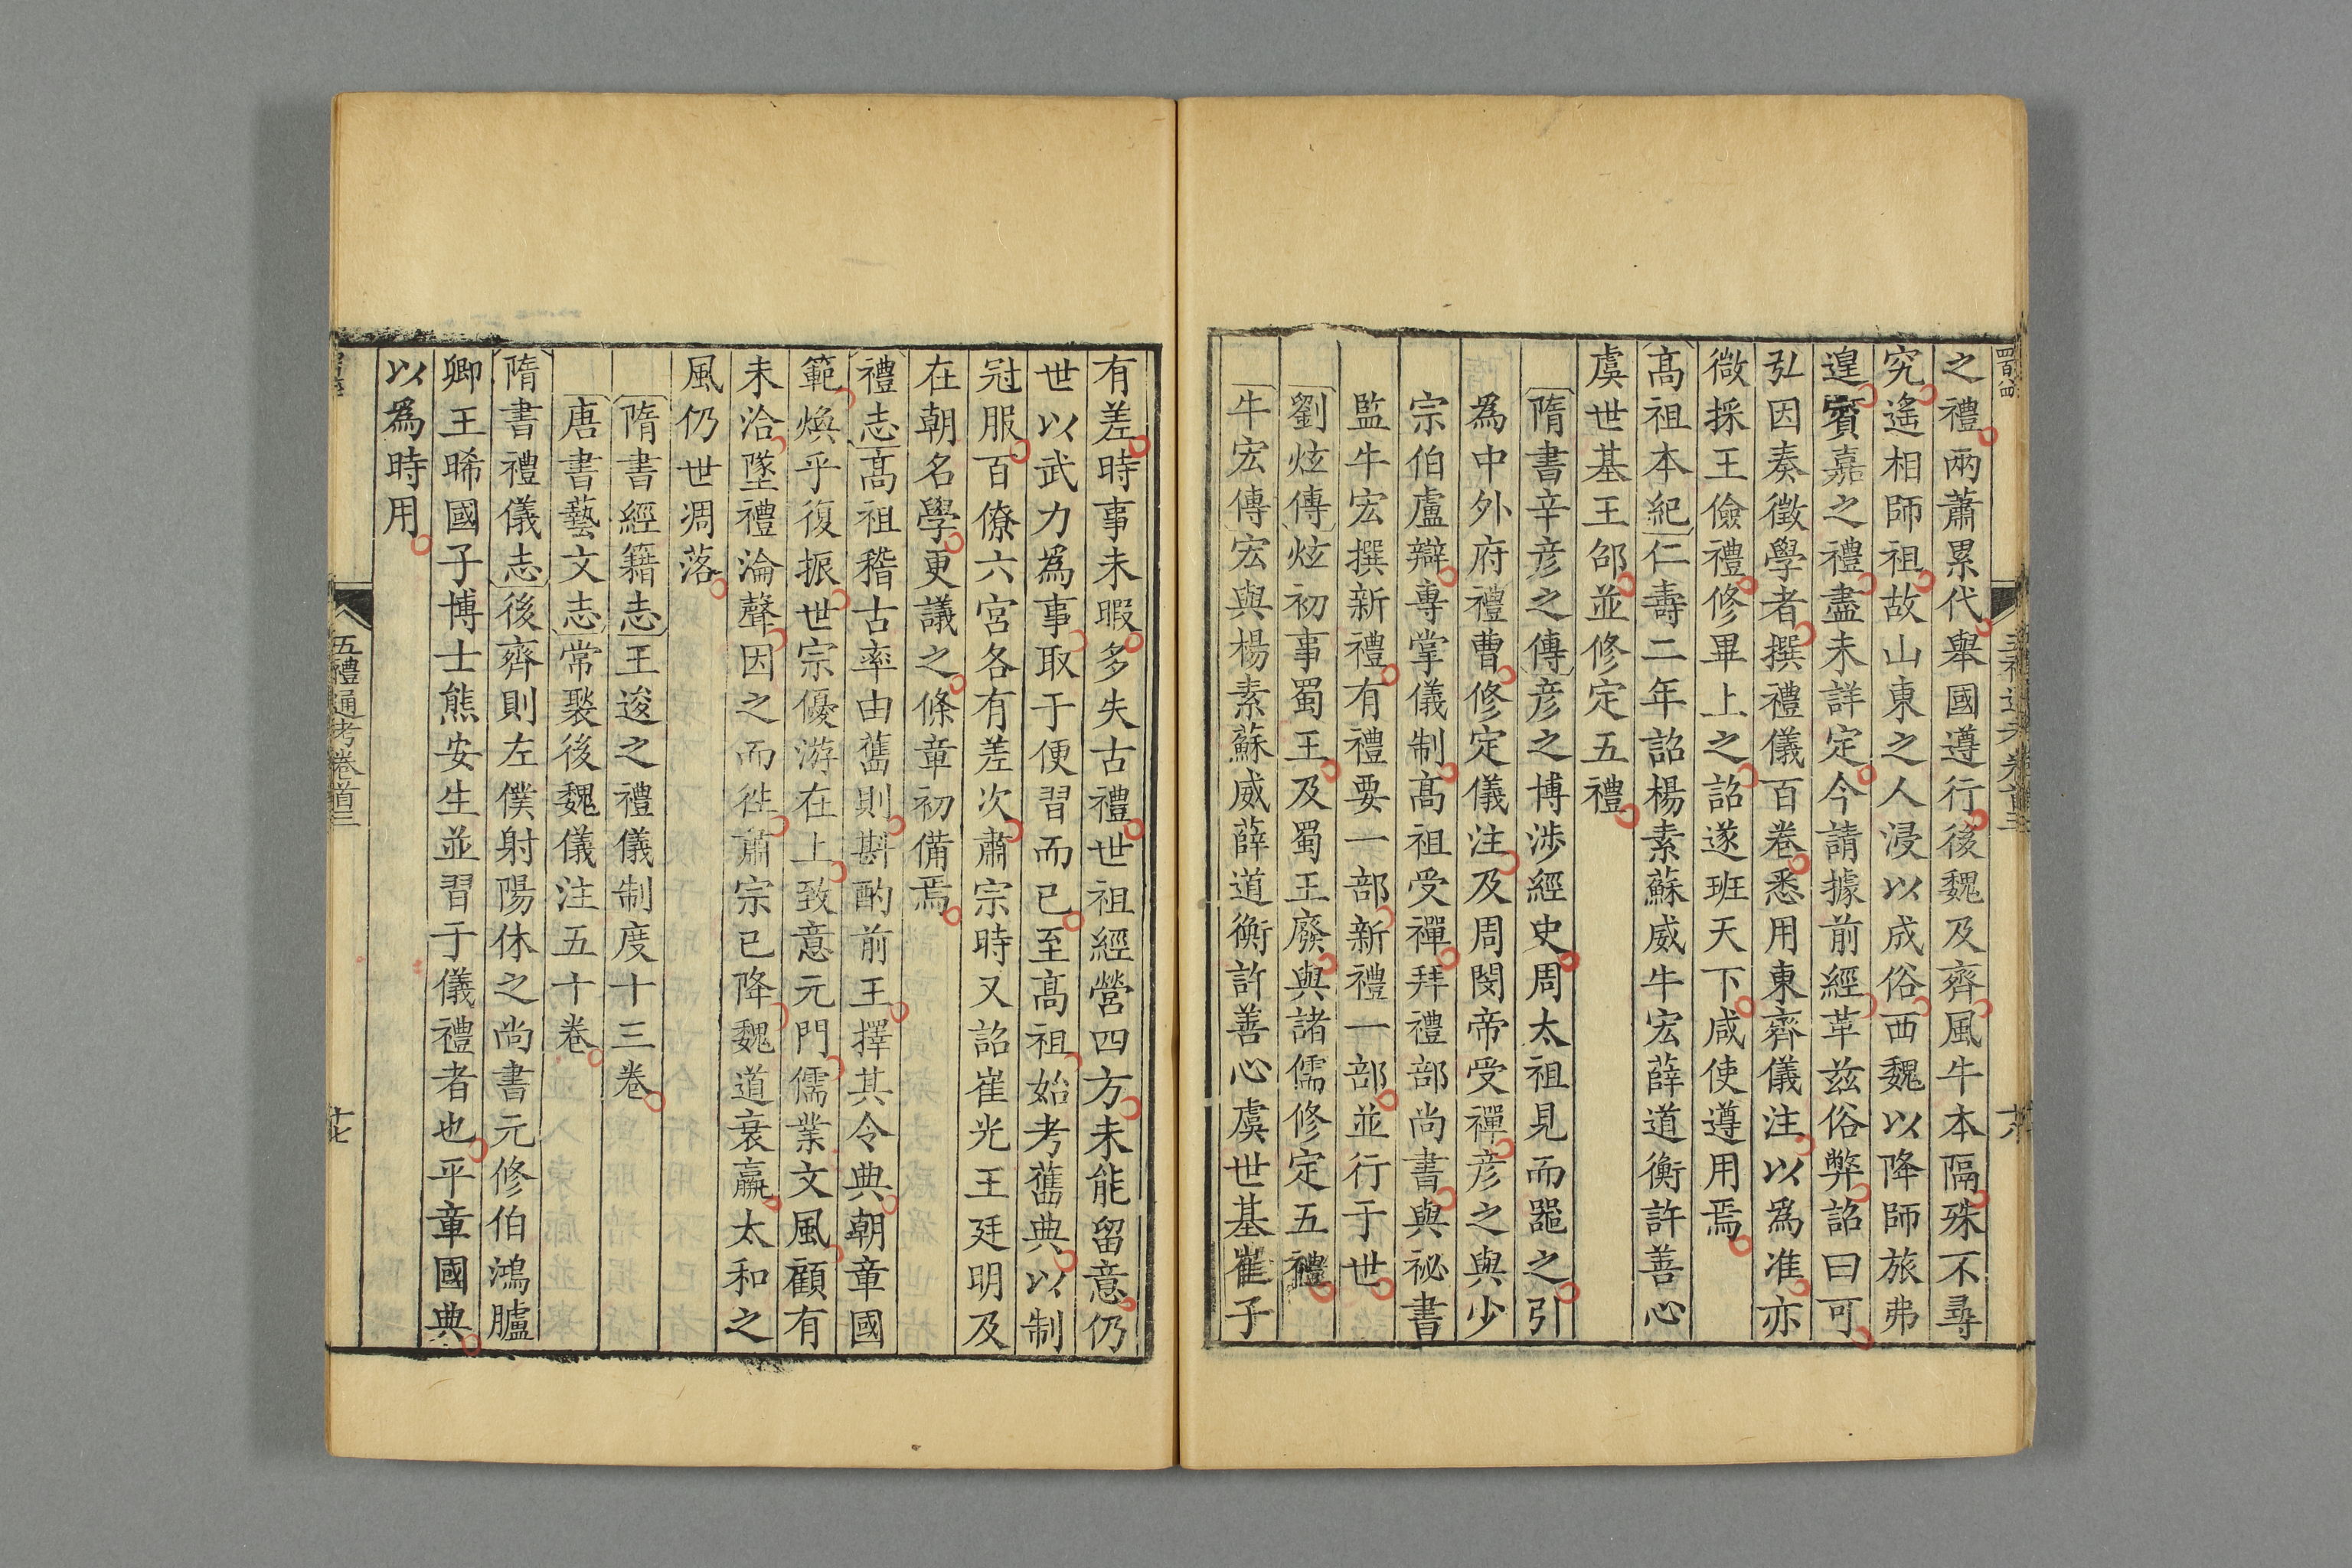 之禮兩蕭累代舉國遵行後魏及齊風牛本隔殊不尋
究遙相師祖故山東之人浸以成俗西魏以降師旅弗
遑賓嘉之禮盡未詳定今請據前經革茲俗弊詔曰可
弘因奏徵學者撰禮儀百卷悉用東齊儀注以爲准亦
微採王儉禮修畢上之詔遂班天下咸使遵用焉
高祖本紀仁壽二年詔楊素蘇威牛宏薛道衡許善心
虞世基王邵並修定五禮
隋書辛彥之傳彥之博涉經史周太祖見而噐之引
爲中外府禮曹修定儀注及周閔帝受禪彥之與少
宗伯盧辯專掌儀制高祖受禪拜禮部尚書與祕書
監牛宏撰新禮有禮要一部新禮一部並行于世
劉炫傳炫初事蜀王及蜀王廢與諸儒修定五禮
牛宏傳宏與楊素蘇威薛道衡許善心虞世基崔子
有差時事未暇多失古禮世祖經營四方未能留意仍
世以武力爲事取于便習而已至高祖始考舊典以制
冠服百僚六宮各有差次肅宗時又詔崔光王廷明及
在朝名學更議之條章初備焉
禮志高祖稽古率由舊則斟酌前王擇其令典朝章國
範煥乎復振世宗優游在上致意元門儒業文風顧有
未洽墜禮淪聲因之而徃肅宗已降魏道衰羸太和之
風仍世凋落
隋書經籍志王逡之禮儀制度十三卷
唐書藝文志常褧後魏儀注五十卷
隋書禮儀志後齊則左僕射陽休之尚書元修伯鴻臚
卿王晞國子博士熊安生並習于儀禮者也平章國典
以爲時用
五禮通考卷首三
十七